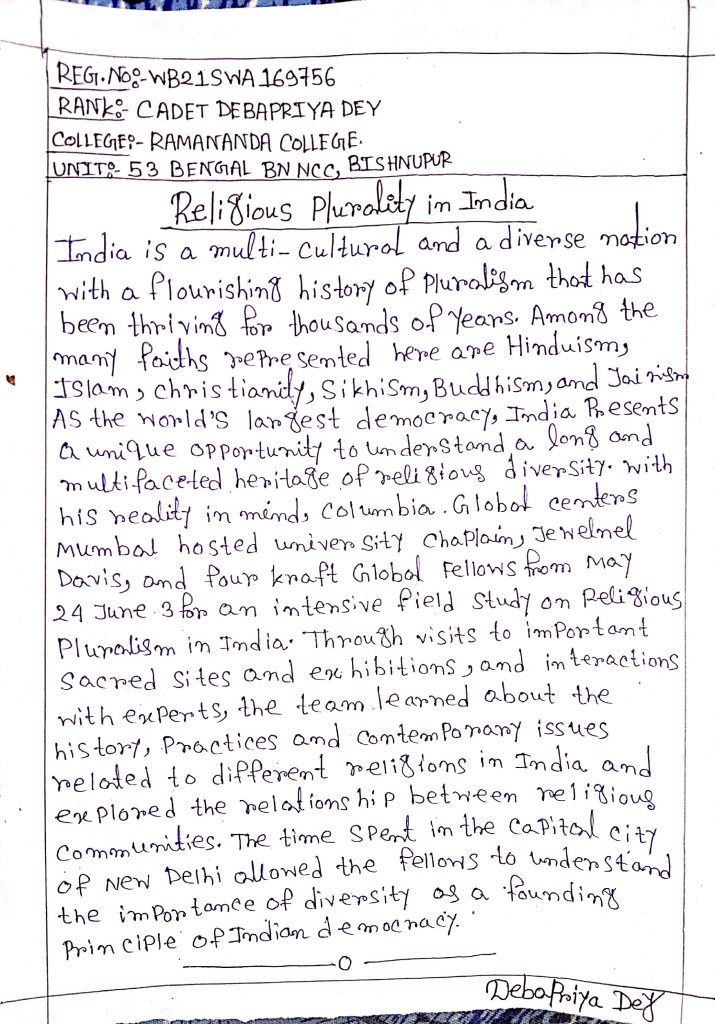 REG. No:- WB21SWA169756
RANK:- CADET DEBAPRIYA DEY
COLLEGE:- RAMANANDA COLLEGE.
UNIT:- 53 BENGAL BN NCC, BISHNUPUR
Religious Plurality in India
India is a multi-cultural and a diverse nation
with a flourishing history of Pluralism that has
been thriving for thousands of years. Among the
many faiths represented here are Hinduism,
Islam, christianity, Sikhism, Buddhism, and Jainism
As the world's largest democracy, India Presents
a unique opportunity to understand a long and
multifaceted heritage of religious diversity. with
his reality in mind, columbia. Global centers
Mumbal hosted university chaplain, Jewelnel
Davis, and four kraft Global Fellows from May
24 June 3 for an intensive field study on Religious
Pluralism in India. Through visits to important
sacred sites and exhibitions, and interactions
with experts, the team learned about the
history, Practices and contemporary issues
related to different religions in India and
explored the relationship between religious
communities. The time spent in the capital city
of New Delhi allowed the fellows to understand
the importance of diversity as a founding
Principle of Indian democracy.
Debapriya Dey